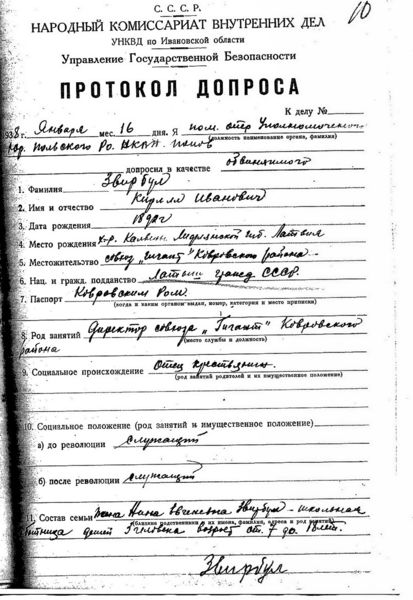 10
С. С. С. Р.
НАРОДНЫЙ КОМИССАРИАТ ВНУТРЕННИХ ДЕЛ
УНКВД по Ивановской области
Управление Государственной Безопасности
ПРОТОКОЛ ДОПРОСА
К делу №
1938 г. Января мес. 16 дня. Я пом. опер Уполномоченного
(должность наименование органа, фамилия)
польского Ро. НКВД Попов
допросил в качестве обвиняемого
1. Фамилия Звирбул
2. Имя и отчество Кирилл Иванович
3. Дата рождения
4. Место рождения Латвия
5. Местожительство совхоз „Гигант" Ковровского района
6. Нац. и гражд. подданство Латыш гражд СССР.
7. Паспорт Ковровским Ром.
(когда и каким органом выдан, номер, категория и место приписки)
8. Род занятий Директор совхоза „Гигант" Ковровского
(место службы и должность)
района
9. Социальное происхождение Отец крестьянин
(род занятий родителей и их имущественное положение)
10. Социальное положение (род занятий и имущественное положение)
а) до революции служащий
б) после революции служащий
11. Состав семьи Жена Нина Евгеневна Звирбул - школьная
(близкие родственники, их имена, фамилии, адреса и род занятий)
детей 3 человека возраст от 7 до 18 лет.
Звирбул